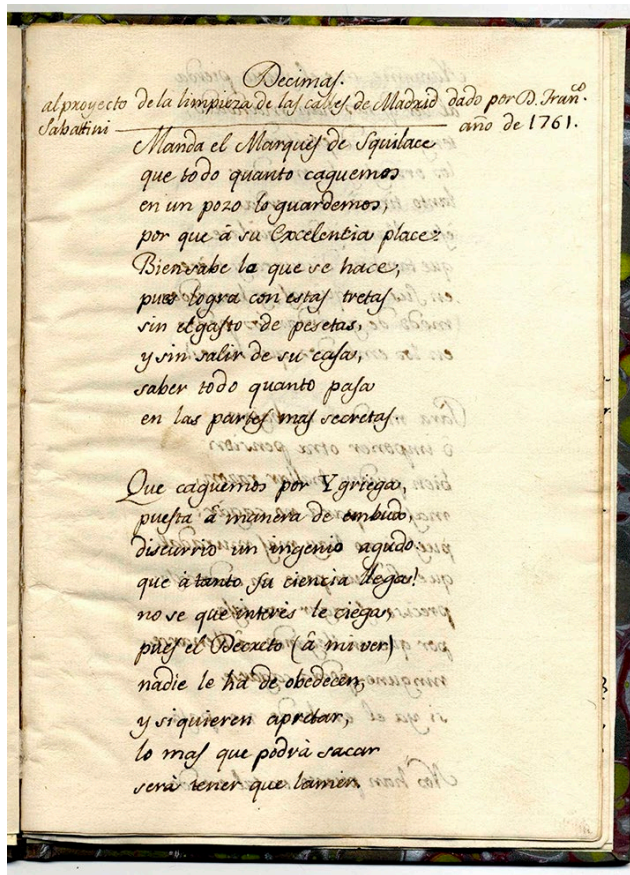 Decimas.
al proyecto de la limpieza de las calles de Madrid dado por D. Franco.
Sabattini año de 1761.
Manda el Marques de Squilace
que todo quanto caguemos
en un pozo lo guardemos,
por que â su Excelentia place:
Bien sabe lo que se hace,
pues logra con estas tretas
sin el gasto de pesetas,
y sin salir de su casa,
saber todo quanto pasa
en las partes mas secretas.
Que caguemos por Y griega,
puesta â manera de embudo,
discurrio un ingenio agudo:
que â tanto su ciencia llega!
no se que interès le ciega,
pues el Decreto (â mi ver)
nadie le ha de obedecer,
y si quieren apretar,
lo mas que podrà sacar
serà tener que lamer.